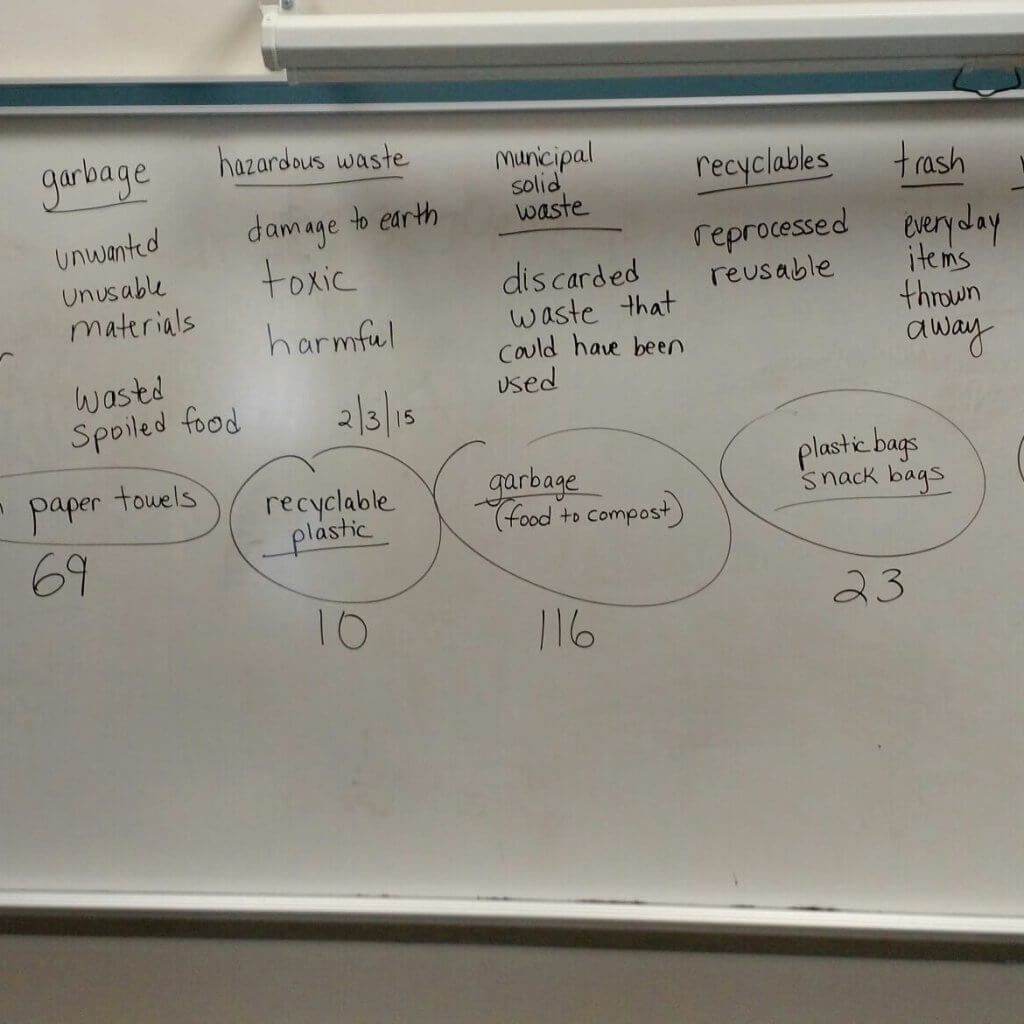 garbage
unwanted
unusable
materials
wasted
spoiled food
hazardous waste
damage to earth
toxic
harmful
2/3/15
municipal
solid
waste
discarded
waste that
could have been
used
recyclables
reprocessed
reusable
trash
everyday
items
thrown
away
paper towels
69
recyclable
plastic
10
garbage
(food to compost)
116
plastic bags
snack bags
23